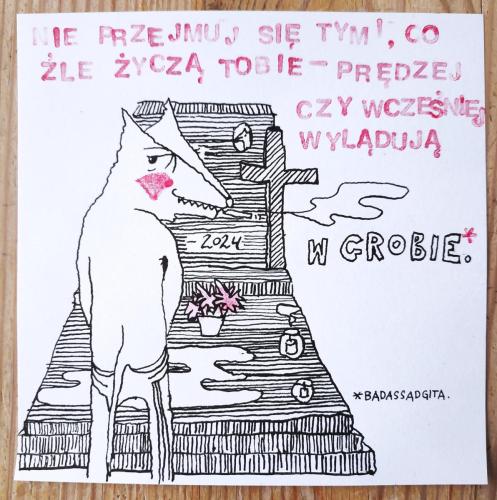 NIE PRZEJMUJ SIĘ TYMI, CO
ŹLE ŻYCZĄ TOBIE - PRĘDZEJ
CZY WCZEŚNIEJ
WYLĄDUJĄ
W GROBIE.*
-2024
*BADASSĄDGITA.